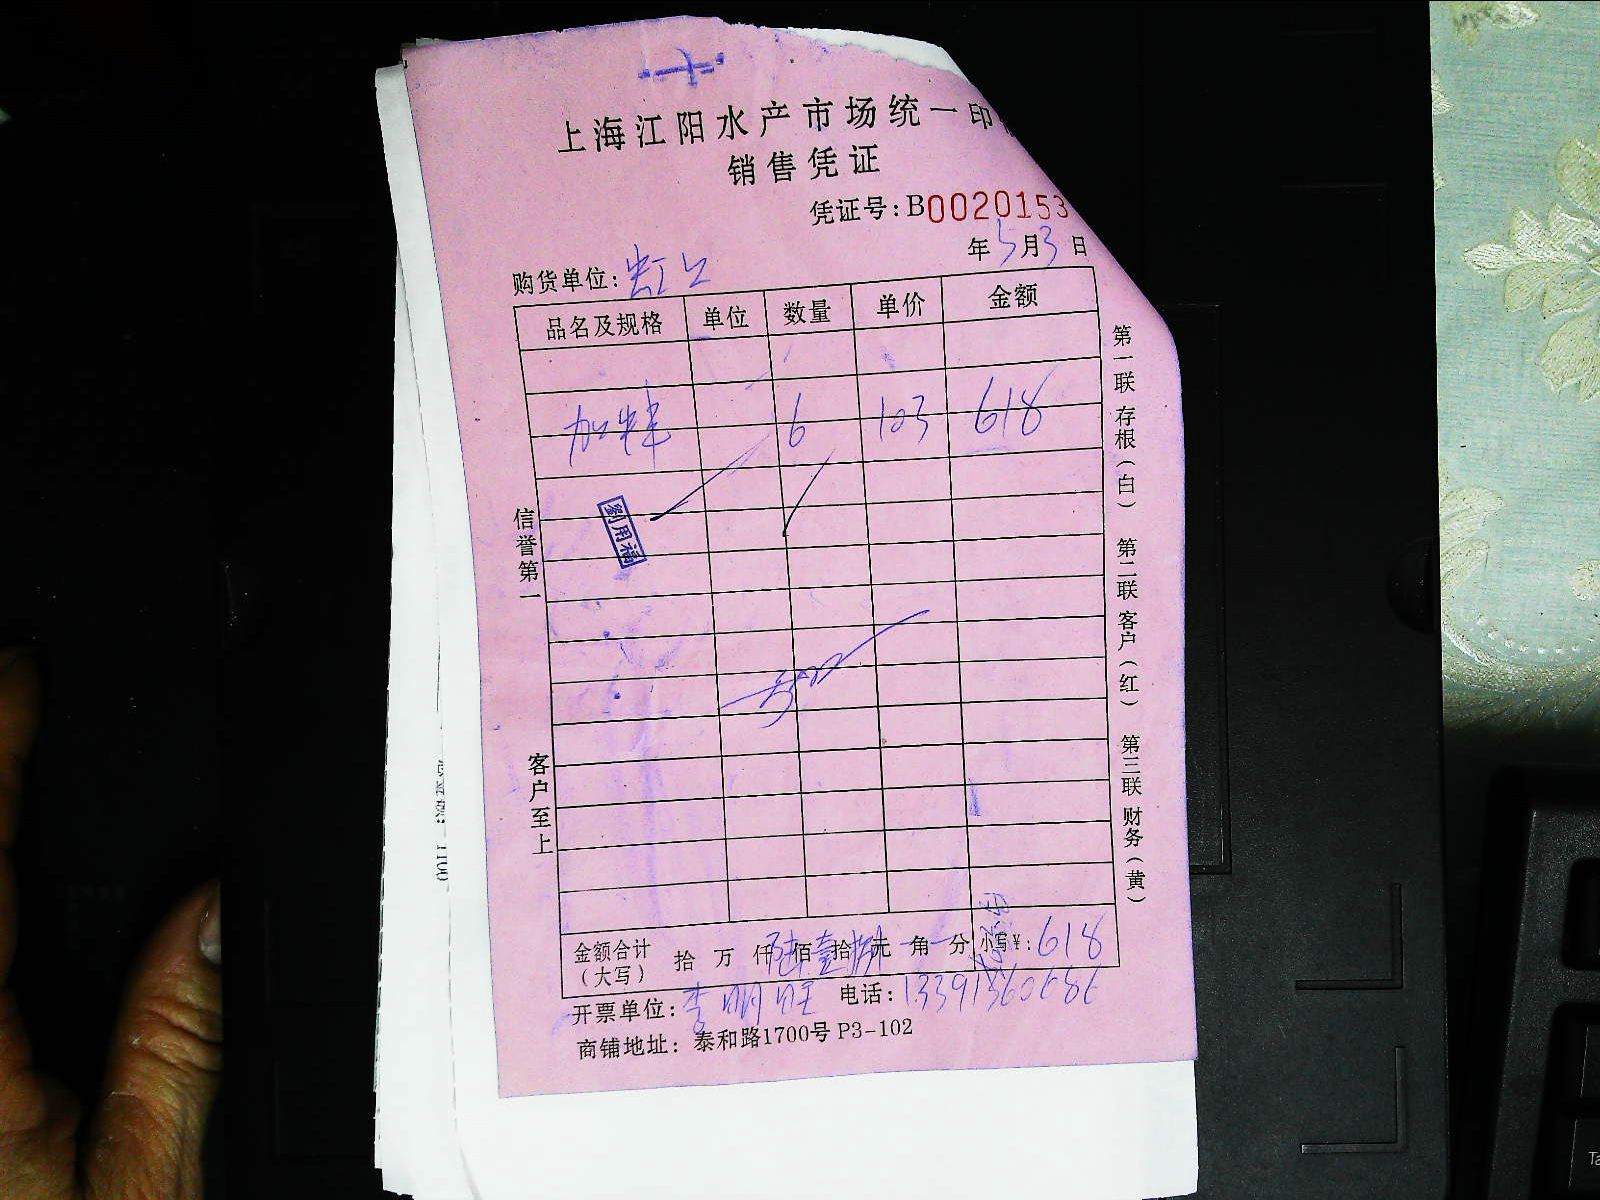 上海江阳水产市场统一印
销售凭证
凭证号:B0020153
年5月3日
购货单位:虹上
品名及规格 单位 数量 单价 金额
加 6 103 618
劉用福
信誉第一
客户至上
第一联 存根(白) 第二联 客户(红) 第三联 财务(黄)
金额合计(大写) 拾 万 仟陆佰壹拾捌元 角 分 小写¥:618
开票单位:李明 电话:
商铺地址: 泰和路1700号 P3-102